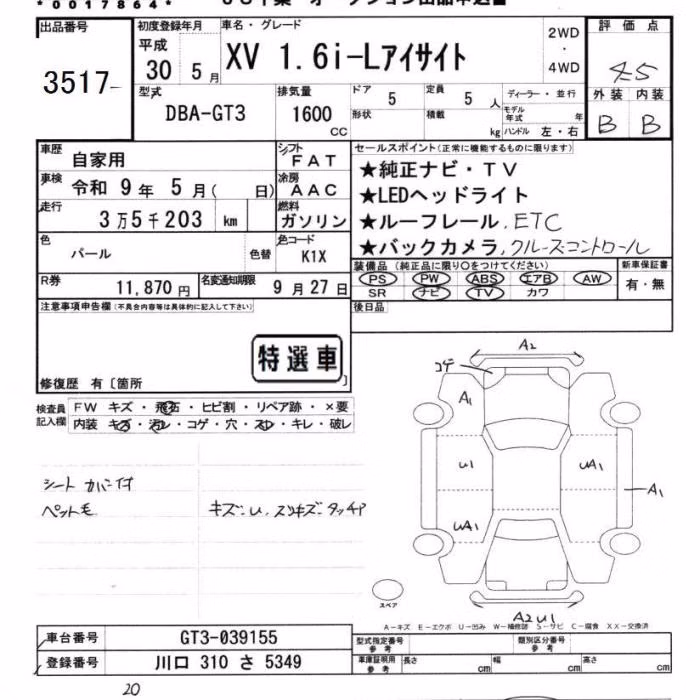 *0017864*
出品番号
3517
初度登録年月
平成
30 5月
車名・グレード
XV 1.6i-Lアイサイト
2WD
・
4WD
評価点
4.5
外装 内装
B B
型式
DBA-GT3
排気量
1600
CC
ドア 5
形状
定員 5 人
積載 kg
ディーラー・並行
モデル年式 年
ハンドル 左・右
車歴
自家用
シフト
FAT
車検
令和 9年 5月( 日)
冷房
AAC
走行
3万5千203 km
燃料
ガソリン
色
パール
色替
色コード
K1X
R券
11,870円
名変通知期限
9月27日
セールスポイント(正常に機能するものに限ります)
★純正ナビ・TV
★LEDヘッドライト
★ルーフレール, ETC
★バックカメラ, クルーズコントロール
装備品(純正品に限り○をつけてください)
PS PW ABS エアB AW
SR ナビ TV カワ
新車保証書
有・無
後日品
注意事項申告欄(不具合内容等は具体的に記入して下さい)
特選車
修復歴 有〔箇所 〕
検査員記入欄
FW キズ・飛石・ヒビ割・リペア跡・×要
内装 キズ・汚レ・コゲ・穴・スレ・キレ・破レ
シートカバー付
ペット毛
キズ.U.スリキズ.タッチア
A2
コゲ
A1
U1
UA1
A1
UA1
スペア
A2 U1
A-キズ E-エクボ U-凹み W-補修跡 S-サビ C-腐食 XX-交換済
車台番号
GT3-039155
登録番号
川口 310 さ 5349
型式指定番号
参考
類別区分番号
参考
車庫証明用
参考
長さ cm
幅 cm
高さ cm
20